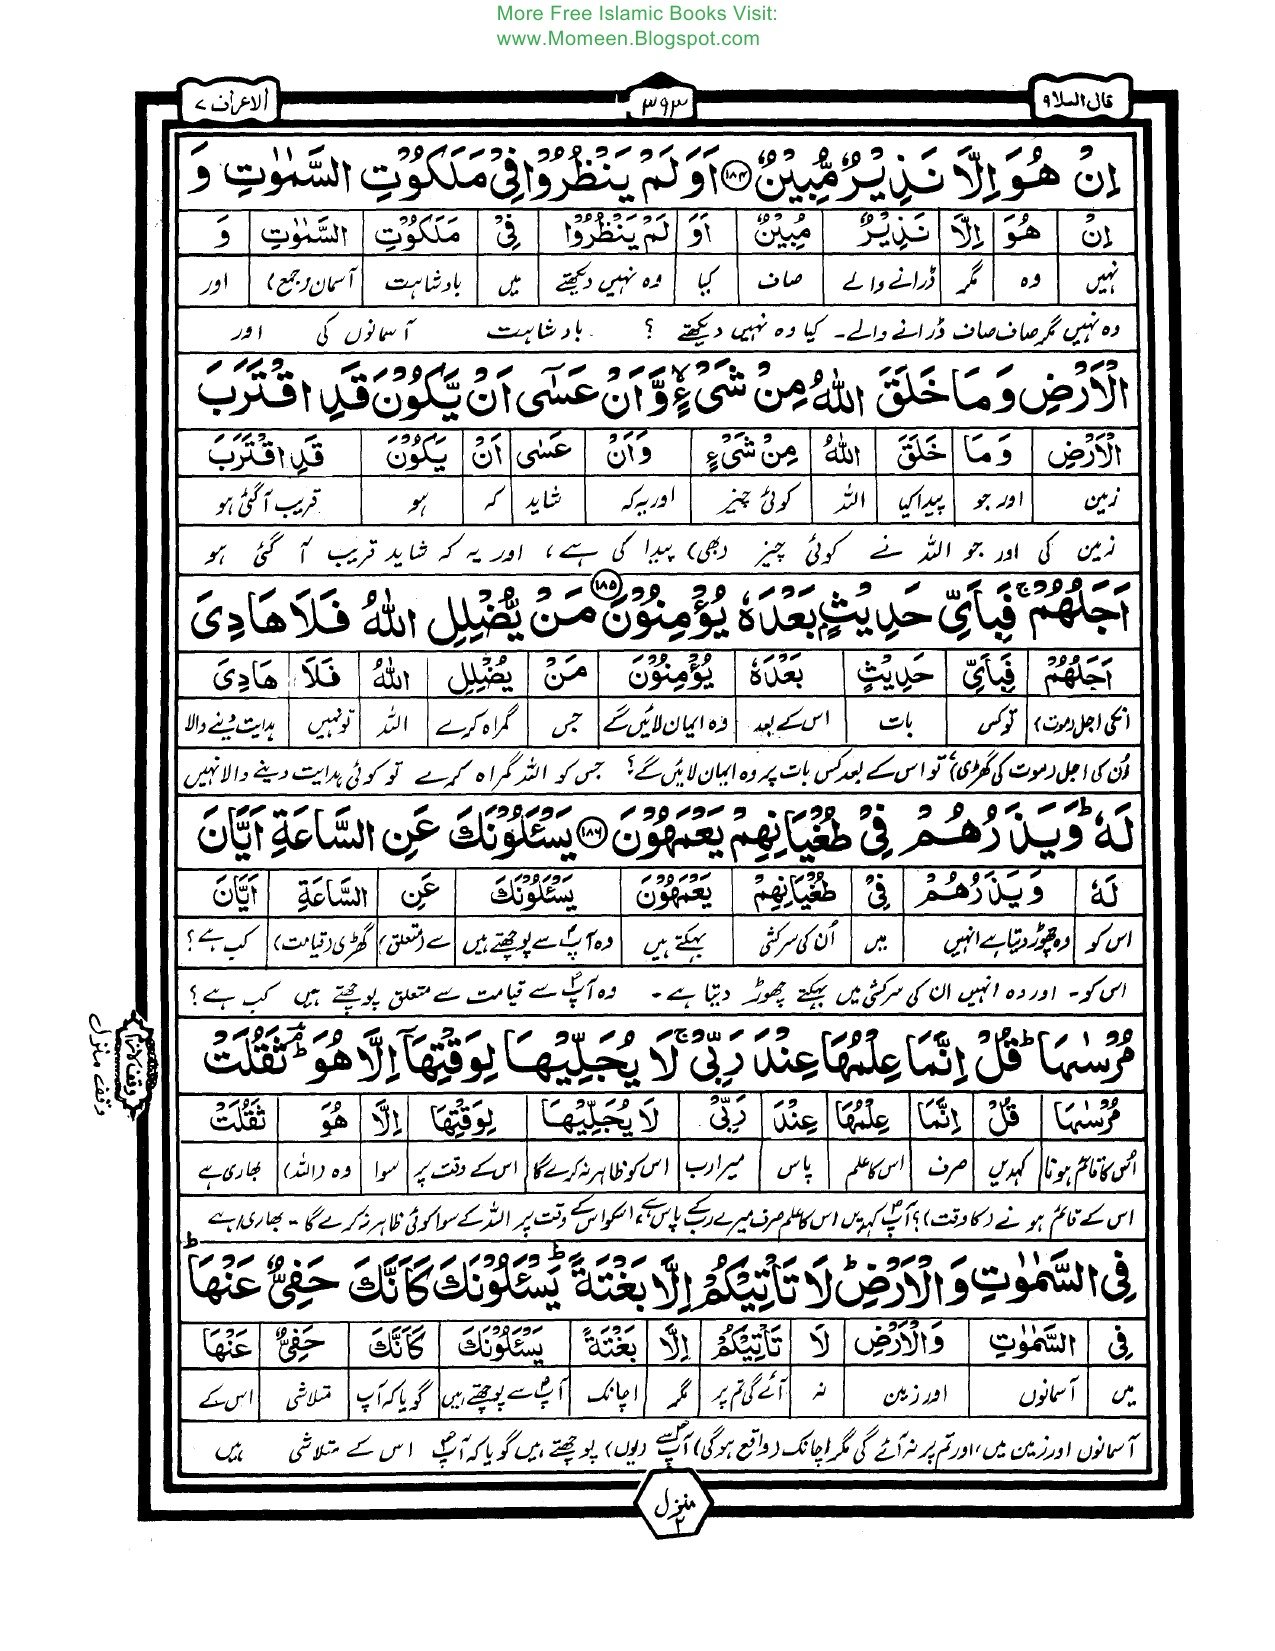 More Free Islamic Books Visit:
www.Momeen.Blogspot.com
قال الملا ۹
۳۹۳
الاعراف ۷
اِنْ هُوَ اِلَّا نَذِيْرٌ مُّبِيْنٌ ۱۸۴ اَوَ لَمْ يَنْظُرُوْا فِيْ مَلَكُوْتِ السَّمٰوٰتِ وَ
اِنْ هُوَ اِلَّا نَذِيْرٌ مُبِيْنٌ اَوَ لَمْ يَنْظُرُوْا فِيْ مَلَكُوْتِ السَّمٰوٰتِ وَ
نہیں وہ مگر ڈرانے والے صاف کیا وہ نہیں دیکھتے میں بادشاہت آسمان (جمع) اور
وہ نہیں مگر صاف صاف ڈرانے والے۔ کیا وہ نہیں دیکھتے ؟ بادشاہت آسمانوں کی اور
الْاَرْضِ وَمَا خَلَقَ اللّٰهُ مِنْ شَيْءٍ ۙ وَّاَنْ عَسٰٓى اَنْ يَّكُوْنَ قَدِ اقْتَرَبَ
الْاَرْضِ وَمَا خَلَقَ اللّٰهُ مِنْ شَيْءٍ وَاَنْ عَسٰى اَنْ يَكُوْنَ قَدِ اقْتَرَبَ
زمین اور جو پیدا کیا اللہ کوئی چیز اور یہ کہ شاید کہ ہو قریب آگئی ہو
زمین کی اور جو اللہ نے کوئی چیز (بھی) پیدا کی ہے، اور یہ کہ شاید قریب آ گئی ہو
اَجَلُهُمْ ۚ فَبِاَيِّ حَدِيْثٍۭ بَعْدَهٗ يُؤْمِنُوْنَ ۱۸۵ مَنْ يُّضْلِلِ اللّٰهُ فَلَا هَادِيَ
اَجَلُهُمْ فَبِاَيِّ حَدِيْثٍ بَعْدَهٗ يُؤْمِنُوْنَ مَنْ يُضْلِلِ اللّٰهُ فَلَا هَادِيَ
انکی اجل (موت) تو کس بات اس کے بعد وہ ایمان لائیں گے جس گمراہ کرے اللہ تو نہیں ہدایت دینے والا
اُن کی اجل (موت کی گھڑی) تو اس کے بعد کس بات پر وہ ایمان لائیں گے؟ جس کو اللہ گمراہ کرے تو کوئی ہدایت دینے والا نہیں
لَهٗ ؕ وَيَذَرُهُمْ فِيْ طُغْيَانِهِمْ يَعْمَهُوْنَ ۱۸۶ يَسْـَٔلُوْنَكَ عَنِ السَّاعَةِ اَيَّانَ
لَهٗ وَيَذَرُهُمْ فِيْ طُغْيَانِهِمْ يَعْمَهُوْنَ يَسْـَٔلُوْنَكَ عَنِ السَّاعَةِ اَيَّانَ
اس کو وہ چھوڑ دیتا ہے انہیں میں اُن کی سرکشی بہکتے ہیں وہ آپؐ سے پوچھتے ہیں سے (متعلق) گھڑی (قیامت) کب ہے؟
اس کو۔ اور وہ انہیں ان کی سرکشی میں بہکتے چھوڑ دیتا ہے۔ وہ آپؐ سے قیامت سے متعلق پوچھتے ہیں کب ہے؟
مُرْسٰىهَا ؕ قُلْ اِنَّمَا عِلْمُهَا عِنْدَ رَبِّيْ ۚ لَا يُجَلِّيْهَا لِوَقْتِهَاۤ اِلَّا هُوَ ؕ ثَقُلَتْ
مُرْسٰىهَا قُلْ اِنَّمَا عِلْمُهَا عِنْدَ رَبِّيْ لَا يُجَلِّيْهَا لِوَقْتِهَا اِلَّا هُوَ ثَقُلَتْ
اُس کا قائم ہونا کہدیں صرف اس کا علم پاس میرا رب اس کو ظاہر نہ کرے گا اس کے وقت پر سوا وہ (اللہ) بھاری ہے
اس کے قائم ہونے (کا وقت)؟ آپؐ کہدیں اس کا علم صرف میرے رب کے پاس ہے، اسکو اس کے وقت پر اللہ کے سوا کوئی ظاہر نہ کرے گا۔ بھاری ہے
وقف لازم
وقف منزل
فِي السَّمٰوٰتِ وَالْاَرْضِ ؕ لَا تَاْتِيْكُمْ اِلَّا بَغْتَةً ؕ يَسْـَٔلُوْنَكَ كَاَنَّكَ حَفِيٌّ عَنْهَا ؕ
فِي السَّمٰوٰتِ وَالْاَرْضِ لَا تَاْتِيْكُمْ اِلَّا بَغْتَةً يَسْـَٔلُوْنَكَ كَاَنَّكَ حَفِيٌّ عَنْهَا
میں آسمانوں اور زمین نہ آئے گی تم پر مگر اچانک آپؐ سے پوچھتے ہیں گویا کہ آپ متلاشی اس کے
آسمانوں اور زمین میں، اور تم پر نہ آئے گی مگر اچانک (واقع ہوگی) آپؐ سے (یوں) پوچھتے ہیں گویا کہ آپؐ اس کے متلاشی ہیں
منزل ۲